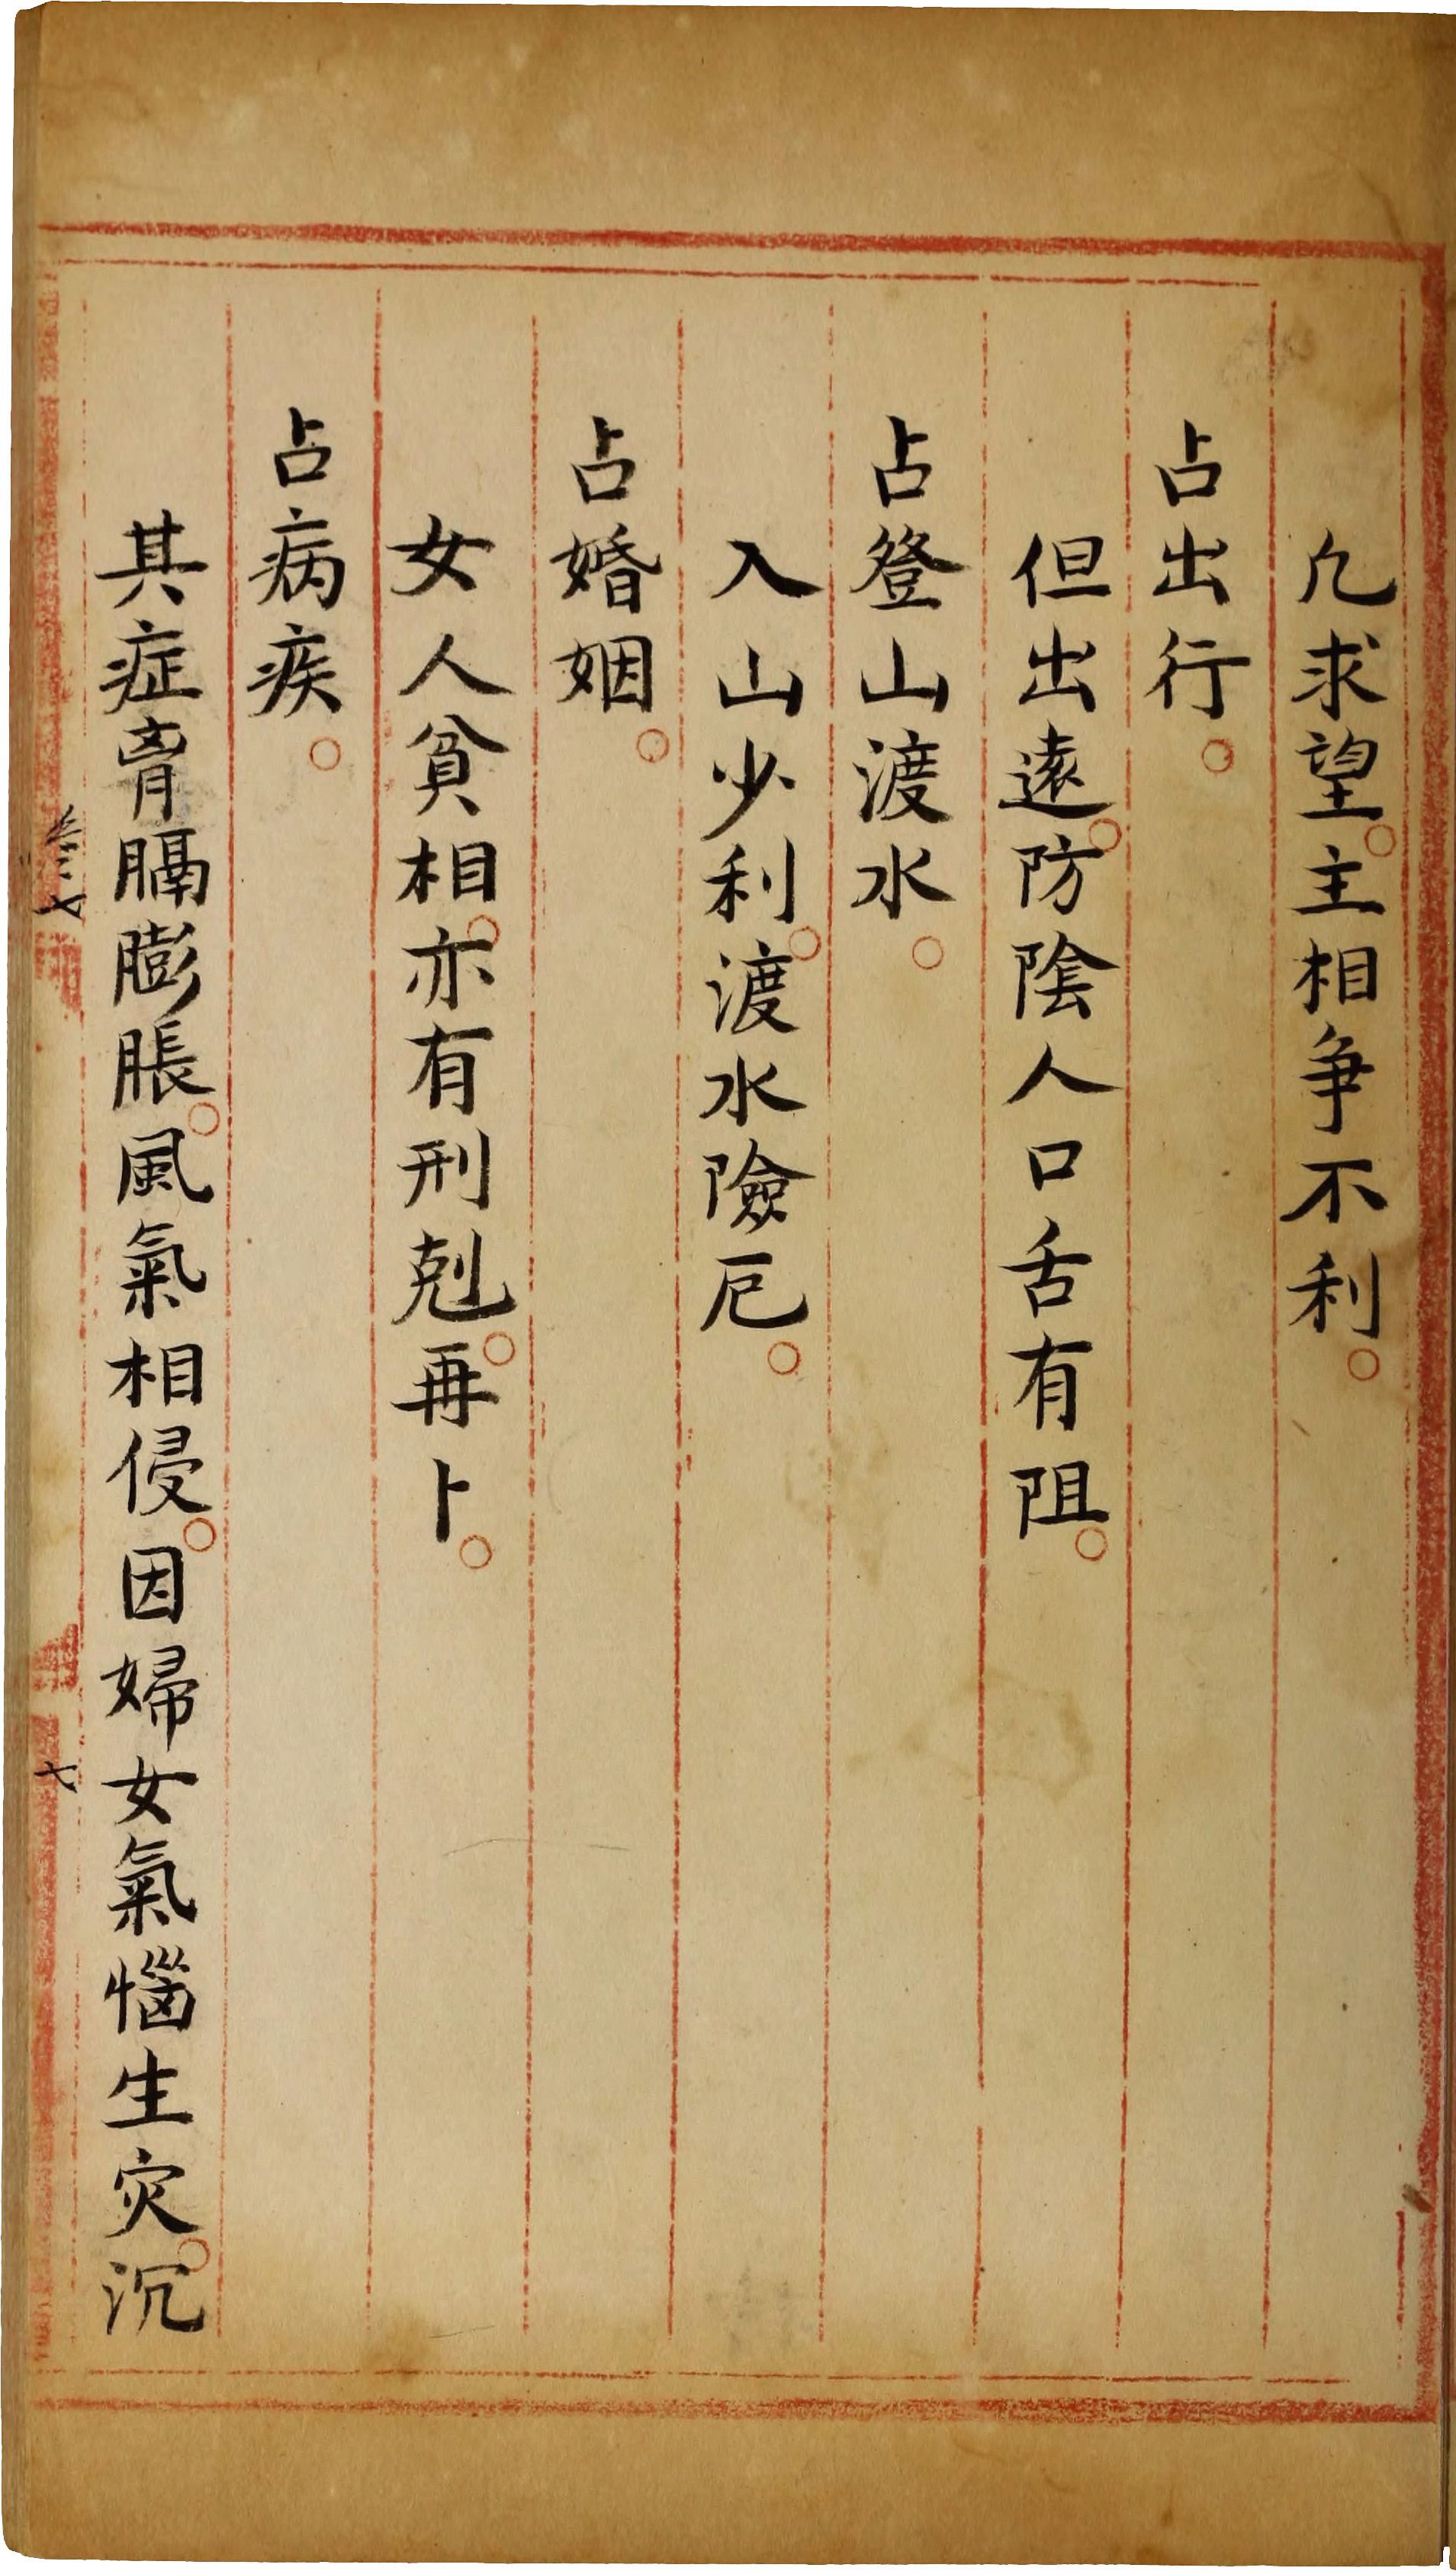 凢求望。主相争不利。
占出行。
但出遠。防陰人口舌有阻。
占登山渡水。
入山少利。渡水險厄。
占婚姻。
女人貧相。亦有刑剋。再卜。
占病疾。
其症胷膈膨脹。風氣相侵。因婦女氣惱生灾。沉
七